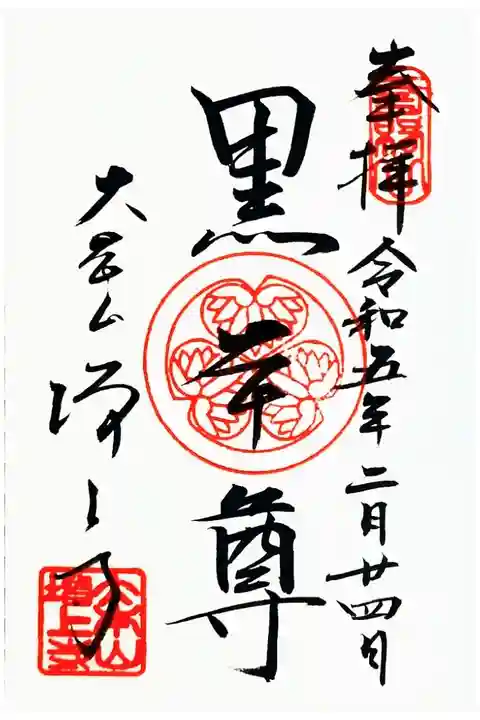 奉拝 令和五年二月廿四日
黒本尊
大本山 増上寺
大本山
増上寺